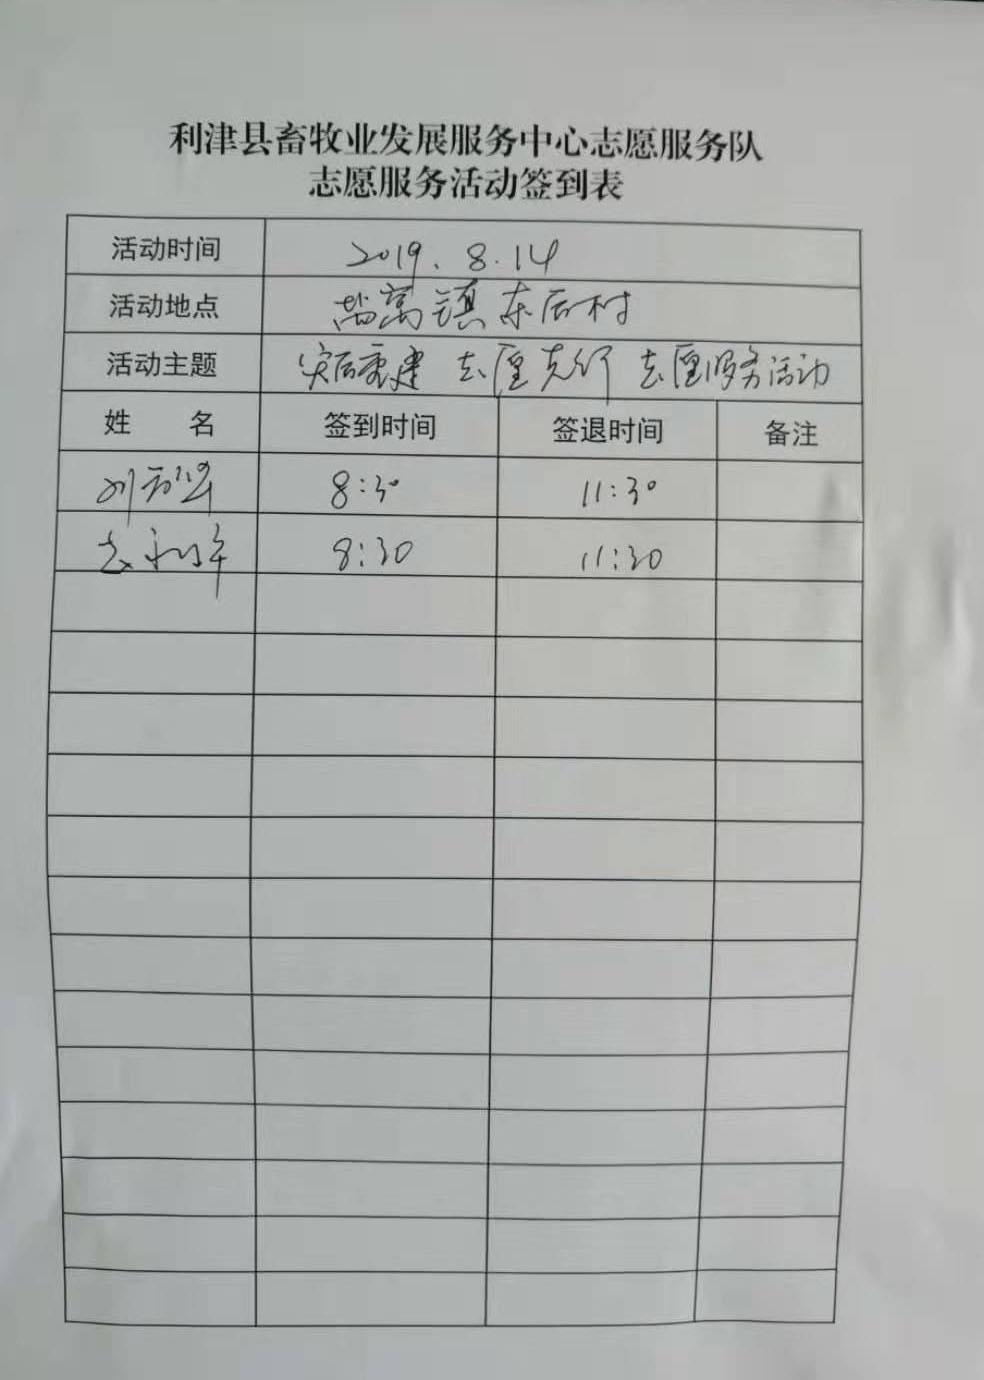 利津县畜牧业发展服务中心志愿服务队
志愿服务活动签到表
活动时间 2019.8.14
活动地点 盐窝镇东后村
活动主题 灾后重建 志愿先行 志愿服务活动
姓 名 签到时间 签退时间 备注
刘 8:30 11:30
8:30 11:30